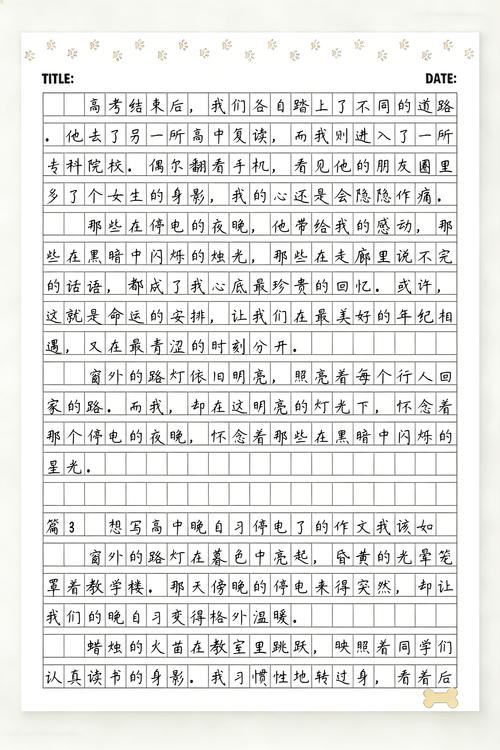 TITLE: DATE:
高考结束后，我们各自踏上了不同的道路
。他去了另一所高中复读，而我则进入了一所
专科院校。偶尔翻看手机，看见他的朋友圈里
多了个女生的身影，我的心还是会隐隐作痛。
那些在停电的夜晚，他带给我的感动，那
些在黑暗中闪烁的烛光，那些在走廊里说不完
的话语，都成了我心底最珍贵的回忆。或许，
这就是命运的安排，让我们在最美好的年纪相
遇，又在最青涩的时刻分开。
窗外的路灯依旧明亮，照亮着每个行人回
家的路。而我，却在这明亮的灯光下，怀念着
那个停电的夜晚，怀念着那些在黑暗中闪烁的
星光。
篇3 想写高中晚自习停电了的作文我该如
窗外的路灯在暮色中亮起，昏黄的光晕笼
罩着教学楼。那天傍晚的停电来得突然，却让
我们的晚自习变得格外温暖。
蜡烛的火苗在教室里跳跃，映照着同学们
认真读书的身影。我习惯性地转过身，看着后